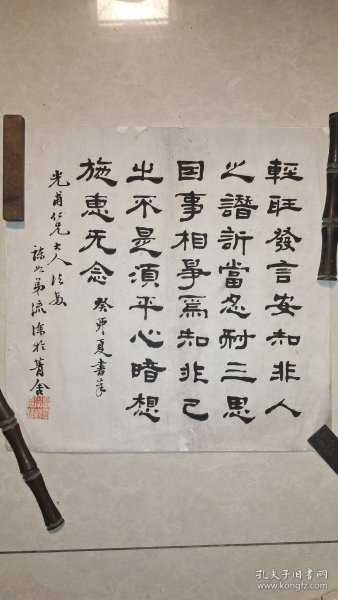 輕聽發言安知非人
之譖訴當忍耐三思
因事相爭焉知非己
之不是須平心暗想
施惠无念
癸卯夏書奉
光甫仁兄大人法政
孔夫子旧书网
www.kongfz.com